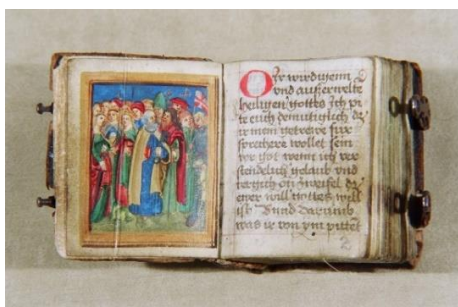 Or wirdigenn
vnd außerwelte
heiligen gottes Ich pi
te euch demutiglich dz
ir mein getrewe fur
sprechere wollet sein
vor got wenn ich ver
stendelich gelaub vnd
on zweifel dz
ewer will gottes will
ist vnd darumb
was ir von ym pittet
2